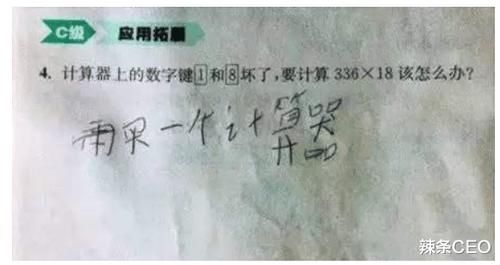 C级 应用拓展
4. 计算器上的数字键1和8坏了,要计算336×18该怎么办?
再买一个计算器
辣条CEO